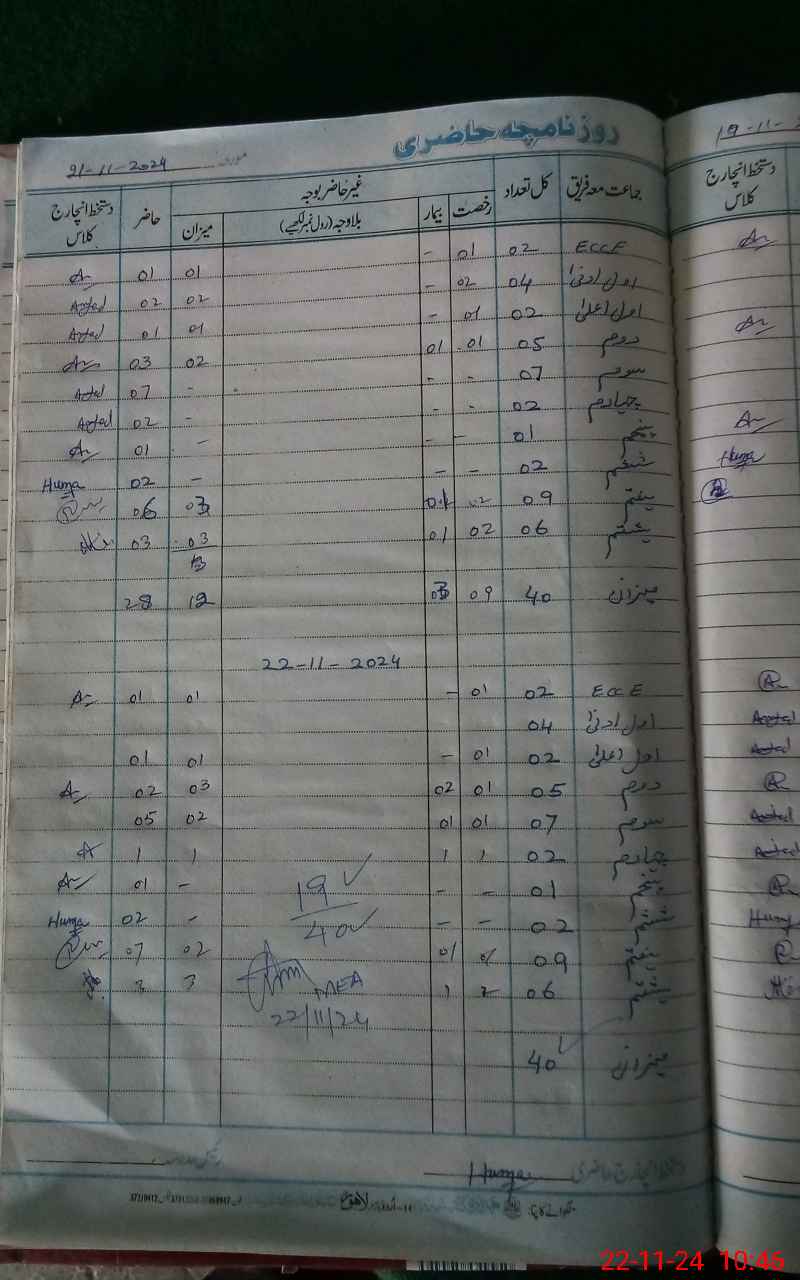 روزنامچہ حاضری
مورخہ 21-11-2024
جماعت معہ فریق کل تعداد غیر حاضر بوجہ حاضر دستخط انچارج کلاس
رخصت بیمار بلاوجہ (رول نمبر لکھیے) میزان
ECCE 02 01 - 01 01
اول ادنیٰ 04 02 - 02 02
اول اعلیٰ 02 01 - 01 01
دوم 05 01 01 02 03
سوم 07 - - - 07
چہارم 02 - - - 02
پنجم 01 - - - 01
ششم 02 - - - 02 Huma
ہفتم 09 02 01 03 06
ہشتم 06 02 01 03 03
میزان 40 09 03 12 28
22-11-2024
ECCE 02 01 - 01 01
اول ادنیٰ 04
اول اعلیٰ 02 01 - 01 01
دوم 05 01 02 03 02
سوم 07 01 01 02 05
چہارم 02 1 1 1 1
پنجم 01 - - - 01
ششم 02 - - - 02 Huma
ہفتم 09 01 02 07
ہشتم 06 2 1 3 3
میزان 40
19
40
MEA
22/11/24
دستخط انچارج حاضری Huma
لاہور
19-11-
دستخط انچارج کلاس
Huma
Huma
22-11-24 10:46